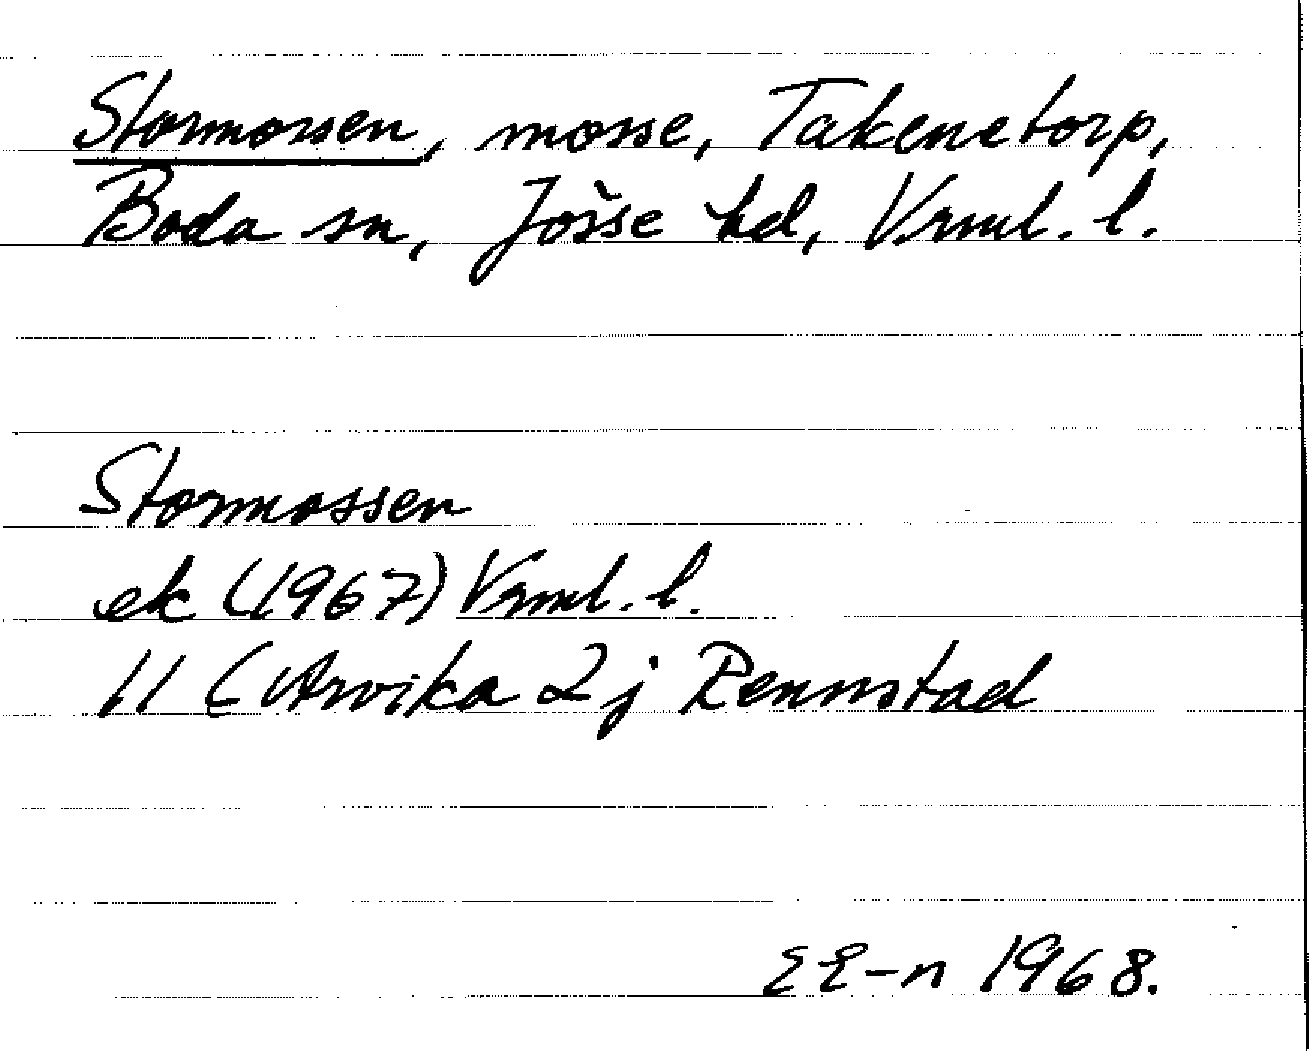 Stormossen, mosse, Takenetorp,
Boda sn, Jösse hd, Vrml. l.
Stormossen
ek (1967) Vrml. l.
11 C Arvika 2j Rennstad
EE-n 1968.